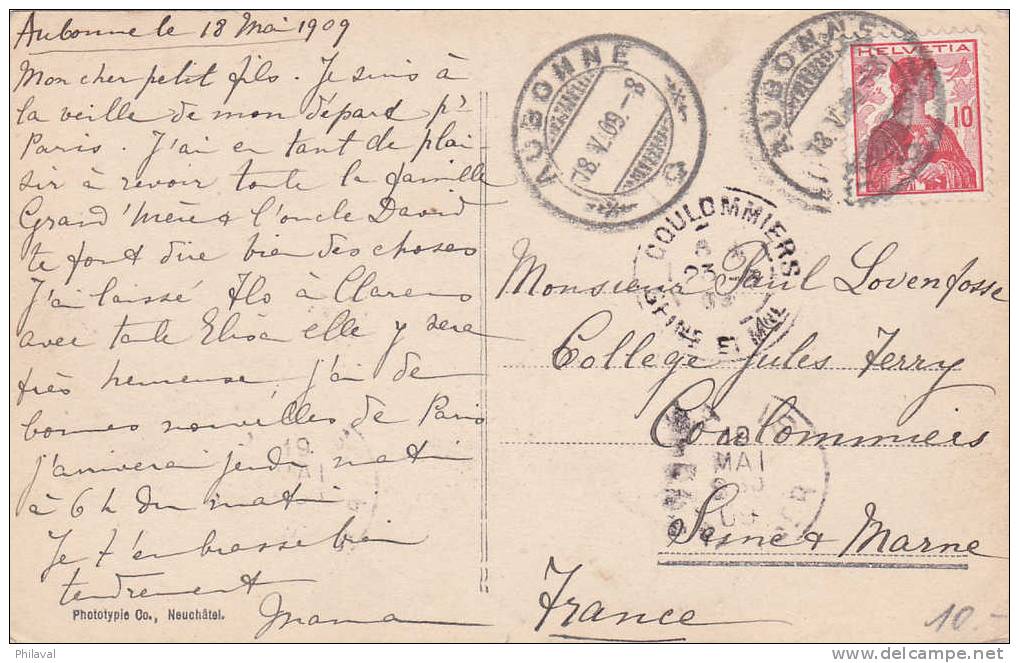 Aubonne le 18 Mai 1909
Mon cher petit fils. Je suis à
la veille de mon départ pr
Paris. J'ai en tant de plai-
sir à revoir toute la famille
Grand'Mère & l'oncle David
te font dire bien des choses
J'ai laissé Flo à Clarens
avec tante Elisa elle y sera
très heureuse. j'ai de
bonnes nouvelles de Paris
j'arriverai jeudi matin
à 6h du matin
Je t'embrasse bien
tendrement
Maman
Phototypie Co., Neuchâtel.
AUBONNE
18.V.09.-8
AUBONNE
18.V.
HELVETIA
10
COULOMMIERS
SEINE ET MNE
Monsieur Paul Lovenfosse
College Jules Ferry
Coulommiers
Seine & Marne
France
19
MAI
10.-
Philaval
www.delcampe.net